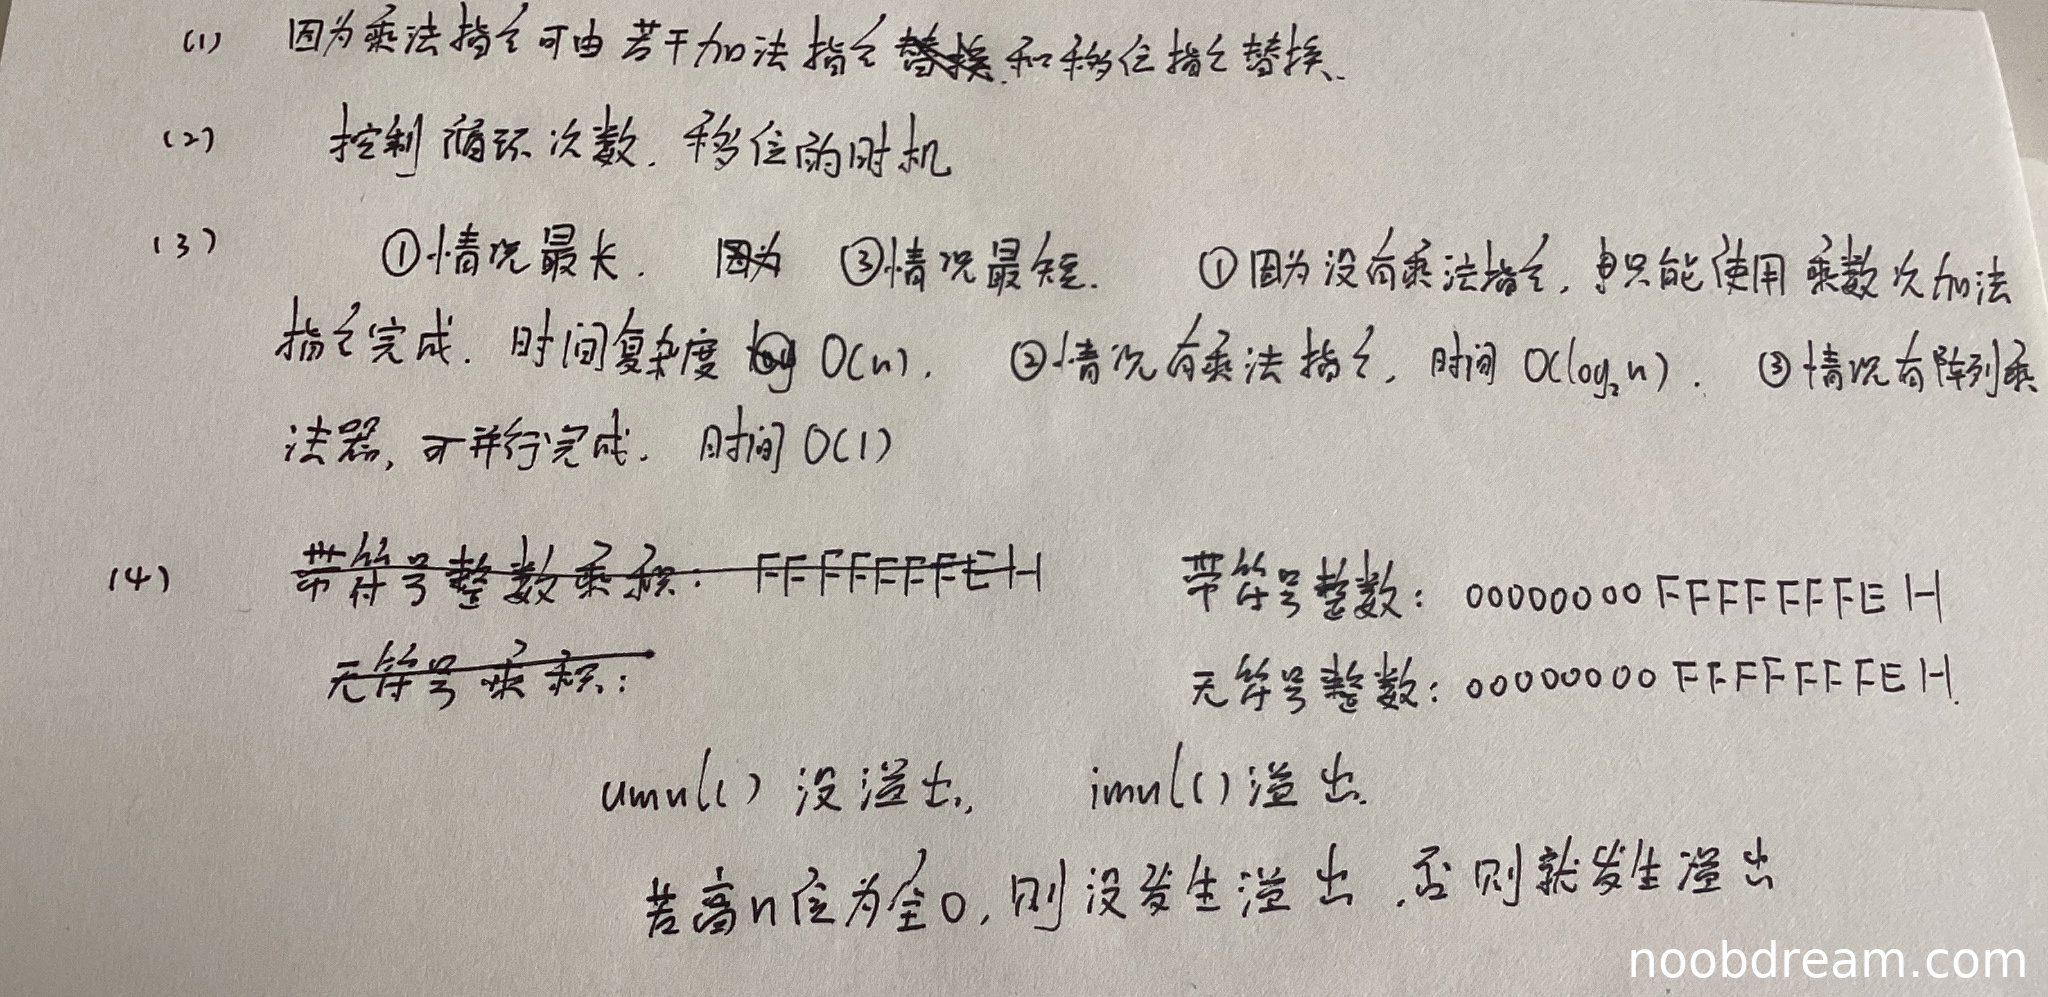 (1) 因为乘法指令可由若干加法指令替换和移位指令替换.
(2) 控制循环次数. 移位的时机
(3) ①情况最长. 因为 ③情况最短. ①因为没有乘法指令, 只能使用乘数次加法
指令完成. 时间复杂度 log O(n). ②情况有乘法指令, 时间 O(log₂n). ③情况有阵列乘
法器, 可并行完成. 时间 O(1)
(4) 带符号整数乘积: FFFFFFFEH 带符号整数: 00000000FFFFFFFEH
无符号乘积: 无符号整数: 00000000FFFFFFFEH.
umul() 没溢出, imul() 溢出.
若高n位为全0, 则没发生溢出, 否则就发生溢出
noobdream.com